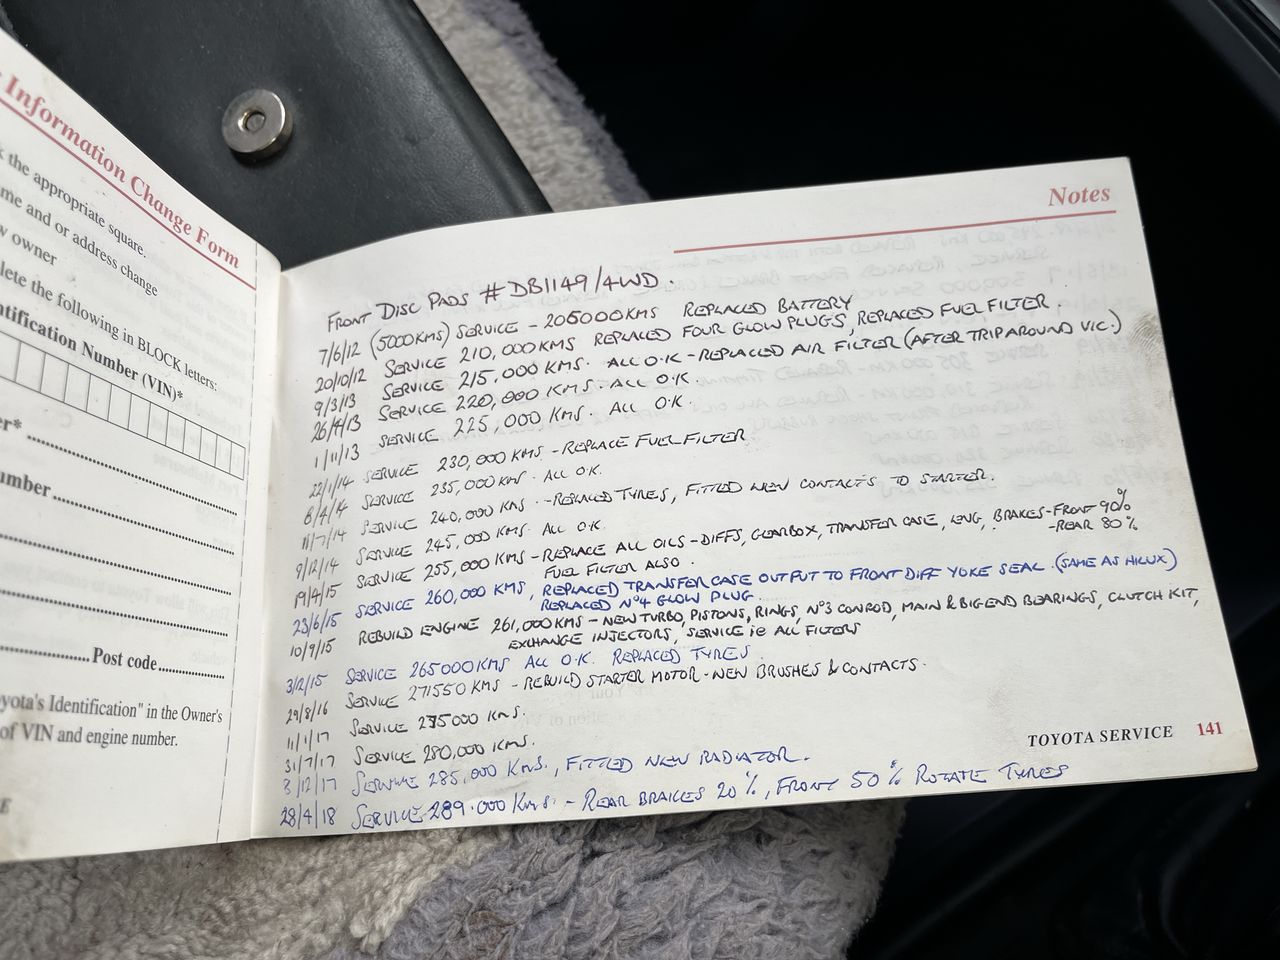 Information Change Form
k the appropriate square.
me and or address change
w owner
lete the following in BLOCK letters:
ntification Number (VIN)*
er*
umber
Post code
oyota's Identification" in the Owner's
of VIN and engine number.
E
Notes
FRONT DISC PADS # DB1149/4WD.
7/6/12 (5000KMS) SERVICE - 205000KMS REPLACED BATTERY
20/10/12 SERVICE 210,000KMS REPLACED FOUR GLOW PLUGS, REPLACED FUEL FILTER.
9/3/13 SERVICE 215,000KMS. ALL O.K - REPLACED AIR FILTER (AFTER TRIP AROUND VIC.)
26/4/13 SERVICE 220,000KMS. ALL O.K.
1/11/13 SERVICE 225,000KMS. ALL O.K.
22/1/14 SERVICE 230,000KMS - REPLACE FUEL FILTER
6/4/14 SERVICE 235,000KMS. ALL O.K.
11/7/14 SERVICE 240,000KMS. - REPLACED TYRES, FITTED NEW CONTACTS TO STARTER.
9/12/14 SERVICE 245,000KMS. ALL O.K.
19/4/15 SERVICE 255,000KMS - REPLACE ALL OILS - DIFFS, GEARBOX, TRANSFER CASE, ENG, BRAKES - FRONT 90%
- REAR 80%
FUEL FILTER ALSO.
23/6/15 SERVICE 260,000KMS, REPLACED TRANSFER CASE OUTPUT TO FRONT DIFF YOKE SEAL. (SAME AS HILUX)
REPLACED Nº4 GLOW PLUG.
10/9/15 REBUILD ENGINE 261,000KMS - NEW TURBO, PISTONS, RINGS, Nº3 CONROD, MAIN & BIG END BEARINGS, CLUTCH KIT,
EXCHANGE INJECTORS, SERVICE ie ALL FILTERS
3/2/15 SERVICE 265000KMS ALL O.K. REPLACED TYRES.
29/8/16 SERVICE 271550KMS - REBUILD STARTER MOTOR - NEW BRUSHES & CONTACTS.
11/1/17 SERVICE 275000 KMS.
31/7/17 SERVICE 280,000KMS.
3/12/17 SERVICE 285,000 KMS., FITTED NEW RADIATOR.
28/4/18 SERVICE 289.000 KMS. - REAR BRAKES 20%, FRONT 50% ROTATE TYRES
TOYOTA SERVICE 141